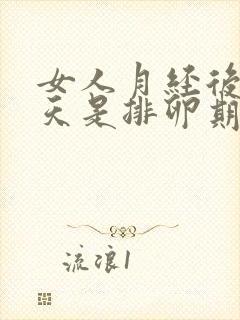 女人月经後
天是排卵期
流浪1